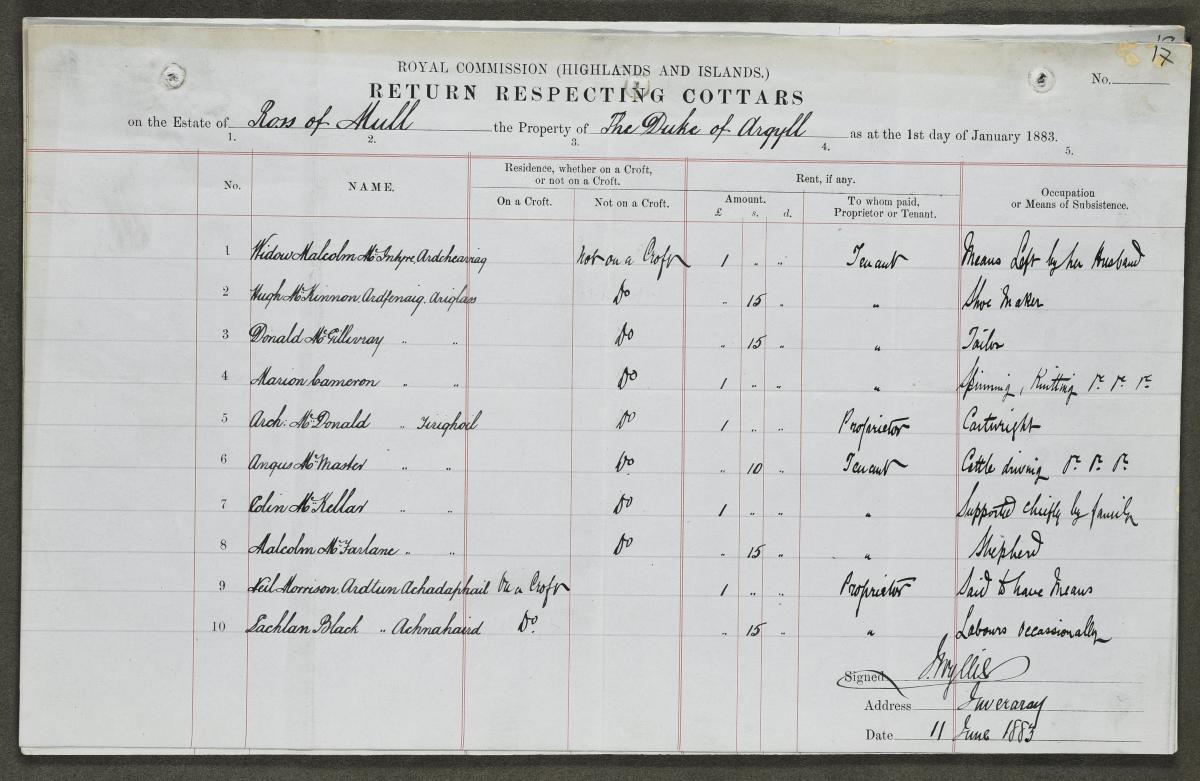 17
ROYAL COMMISSION (HIGHLANDS AND ISLANDS.)
No.
RETURN RESPECTING COTTARS
on the Estate of Ross of Mull the Property of The Duke of Argyll as at the 1st day of January 1883.
1. 2. 3. 4. 5.
No. NAME. Residence, whether on a Croft, or not on a Croft. Rent, if any. Occupation or Means of Subsistence.
On a Croft. Not on a Croft. Amount. £ s. d. To whom paid, Proprietor or Tenant.
1 Widow Malcolm McIntyre, Ardchearnaig Not on a Croft 1 " " Tenant Means Left by her Husband
2 Hugh McKinnon, Ardfenaig. Ariglass Do " 15 " " Shoe Maker
3 Donald McGillivray " " Do " 15 " " Tailor
4 Marion Cameron " " Do 1 " " " Spinning, Knitting
5 Arch: McDonald " Tirighoil Do 1 " " Proprietor Cartwright
6 Angus McMaster " " Do " 10 " Tenant Cattle driving
7 Colin McKellar " " Do 1 " " " Supported chiefly by family
8 Malcolm McFarlane " " Do " 15 " " Shepherd
9 Neil Morrison, Ardtun Achadaphail On a Croft 1 " " Proprietor Said to have Means
10 Lachlan Black " Achnahaird Do. " 15 " " Labours occassionally
Signed J. Wyllie
Address Inveraray
Date 11 June 1883